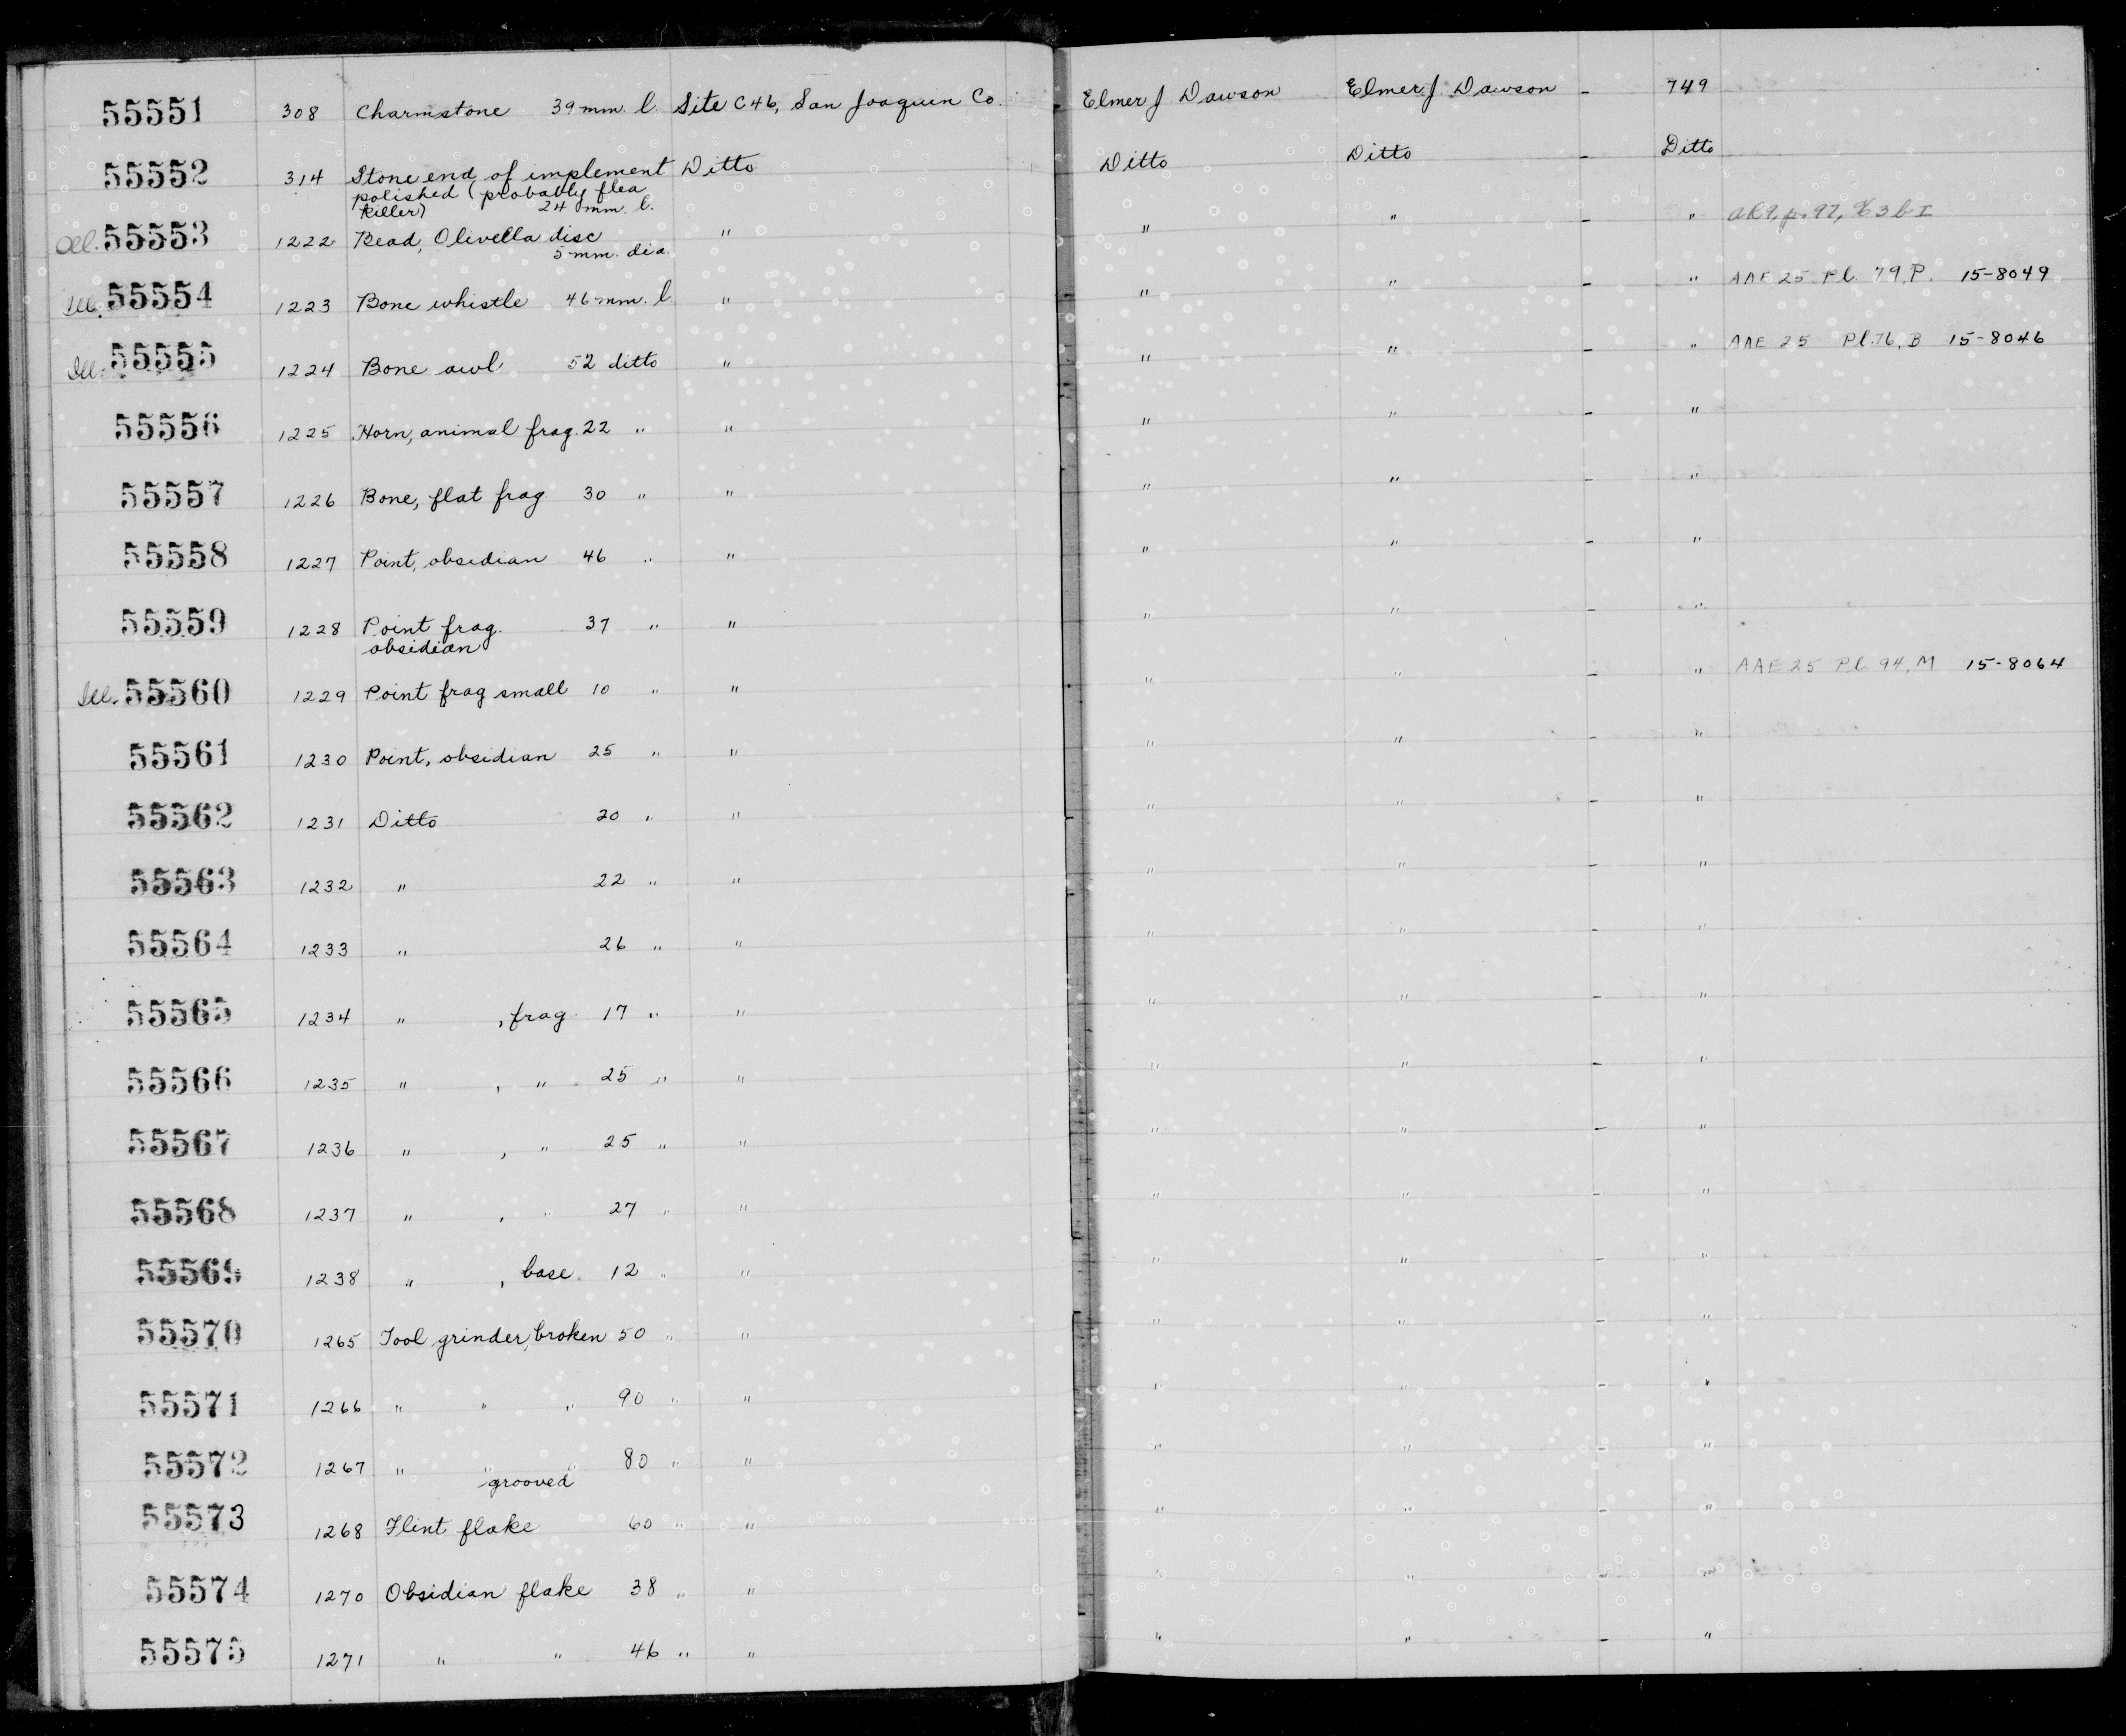 55551 308 Charmstone 39 mm. l. Site C46, San Joaquin Co. Elmer J Dawson Elmer J Dawson - 749
55552 314 Stone end of implement Ditto Ditto Ditto - Ditto
polished (probably flea
killer) 24 mm. l.
Ill. 55553 1222 Bead, Olivella disc " " " - " p. 97,
5 mm. dia.
Ill. 55554 1223 Bone whistle 46 mm. l. " " " - " AAE 25 Pl. 79, P. 15-8049
Ill. 55555 1224 Bone awl 52 ditto " " " - " AAE 25 Pl. 76, B 15-8046
55556 1225 Horn, animal frag. 22 " " " " - "
55557 1226 Bone, flat frag 30 " " " " - "
55558 1227 Point, obsidian 46 " " " " - "
55559 1228 Point frag. 37 " " " " - "
obsidian
Ill. 55560 1229 Point frag small 10 " " " " - " AAE 25 Pl. 94, M 15-8064
55561 1230 Point, obsidian 25 " " " " - "
55562 1231 Ditto 20 " " " " - "
55563 1232 " 22 " " " " - "
55564 1233 " 26 " " " " - "
55565 1234 " , frag. 17 " " " " - "
55566 1235 " , " 25 " " " " - "
55567 1236 " , " 25 " " " " - "
55568 1237 " , " 27 " " " " - "
55569 1238 " , base. 12 " " " " - "
55570 1265 Tool grinder, broken 50 " " " " - "
55571 1266 " " " 90 " " " " - "
55572 1267 " " " 80 " " " " - "
grooved
55573 1268 Flint flake 60 " " " " - "
55574 1270 Obsidian flake 38 " " " " - "
55575 1271 " " 46 " " " " - "